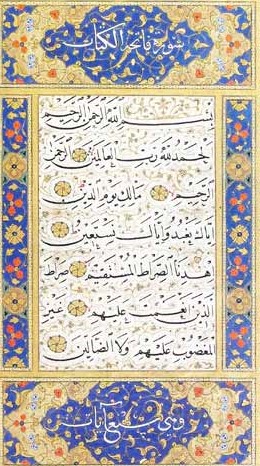 سورة فاتحة الكتاب
بسم الله الرحمن الرحيم
الحمد لله رب العالمين الرحمن
الرحيم مالك يوم الدين
إياك نعبد وإياك نستعين
اهدنا الصراط المستقيم صراط
الذين أنعمت عليهم غير
المغضوب عليهم ولا الضالين
وهي سبع آيات